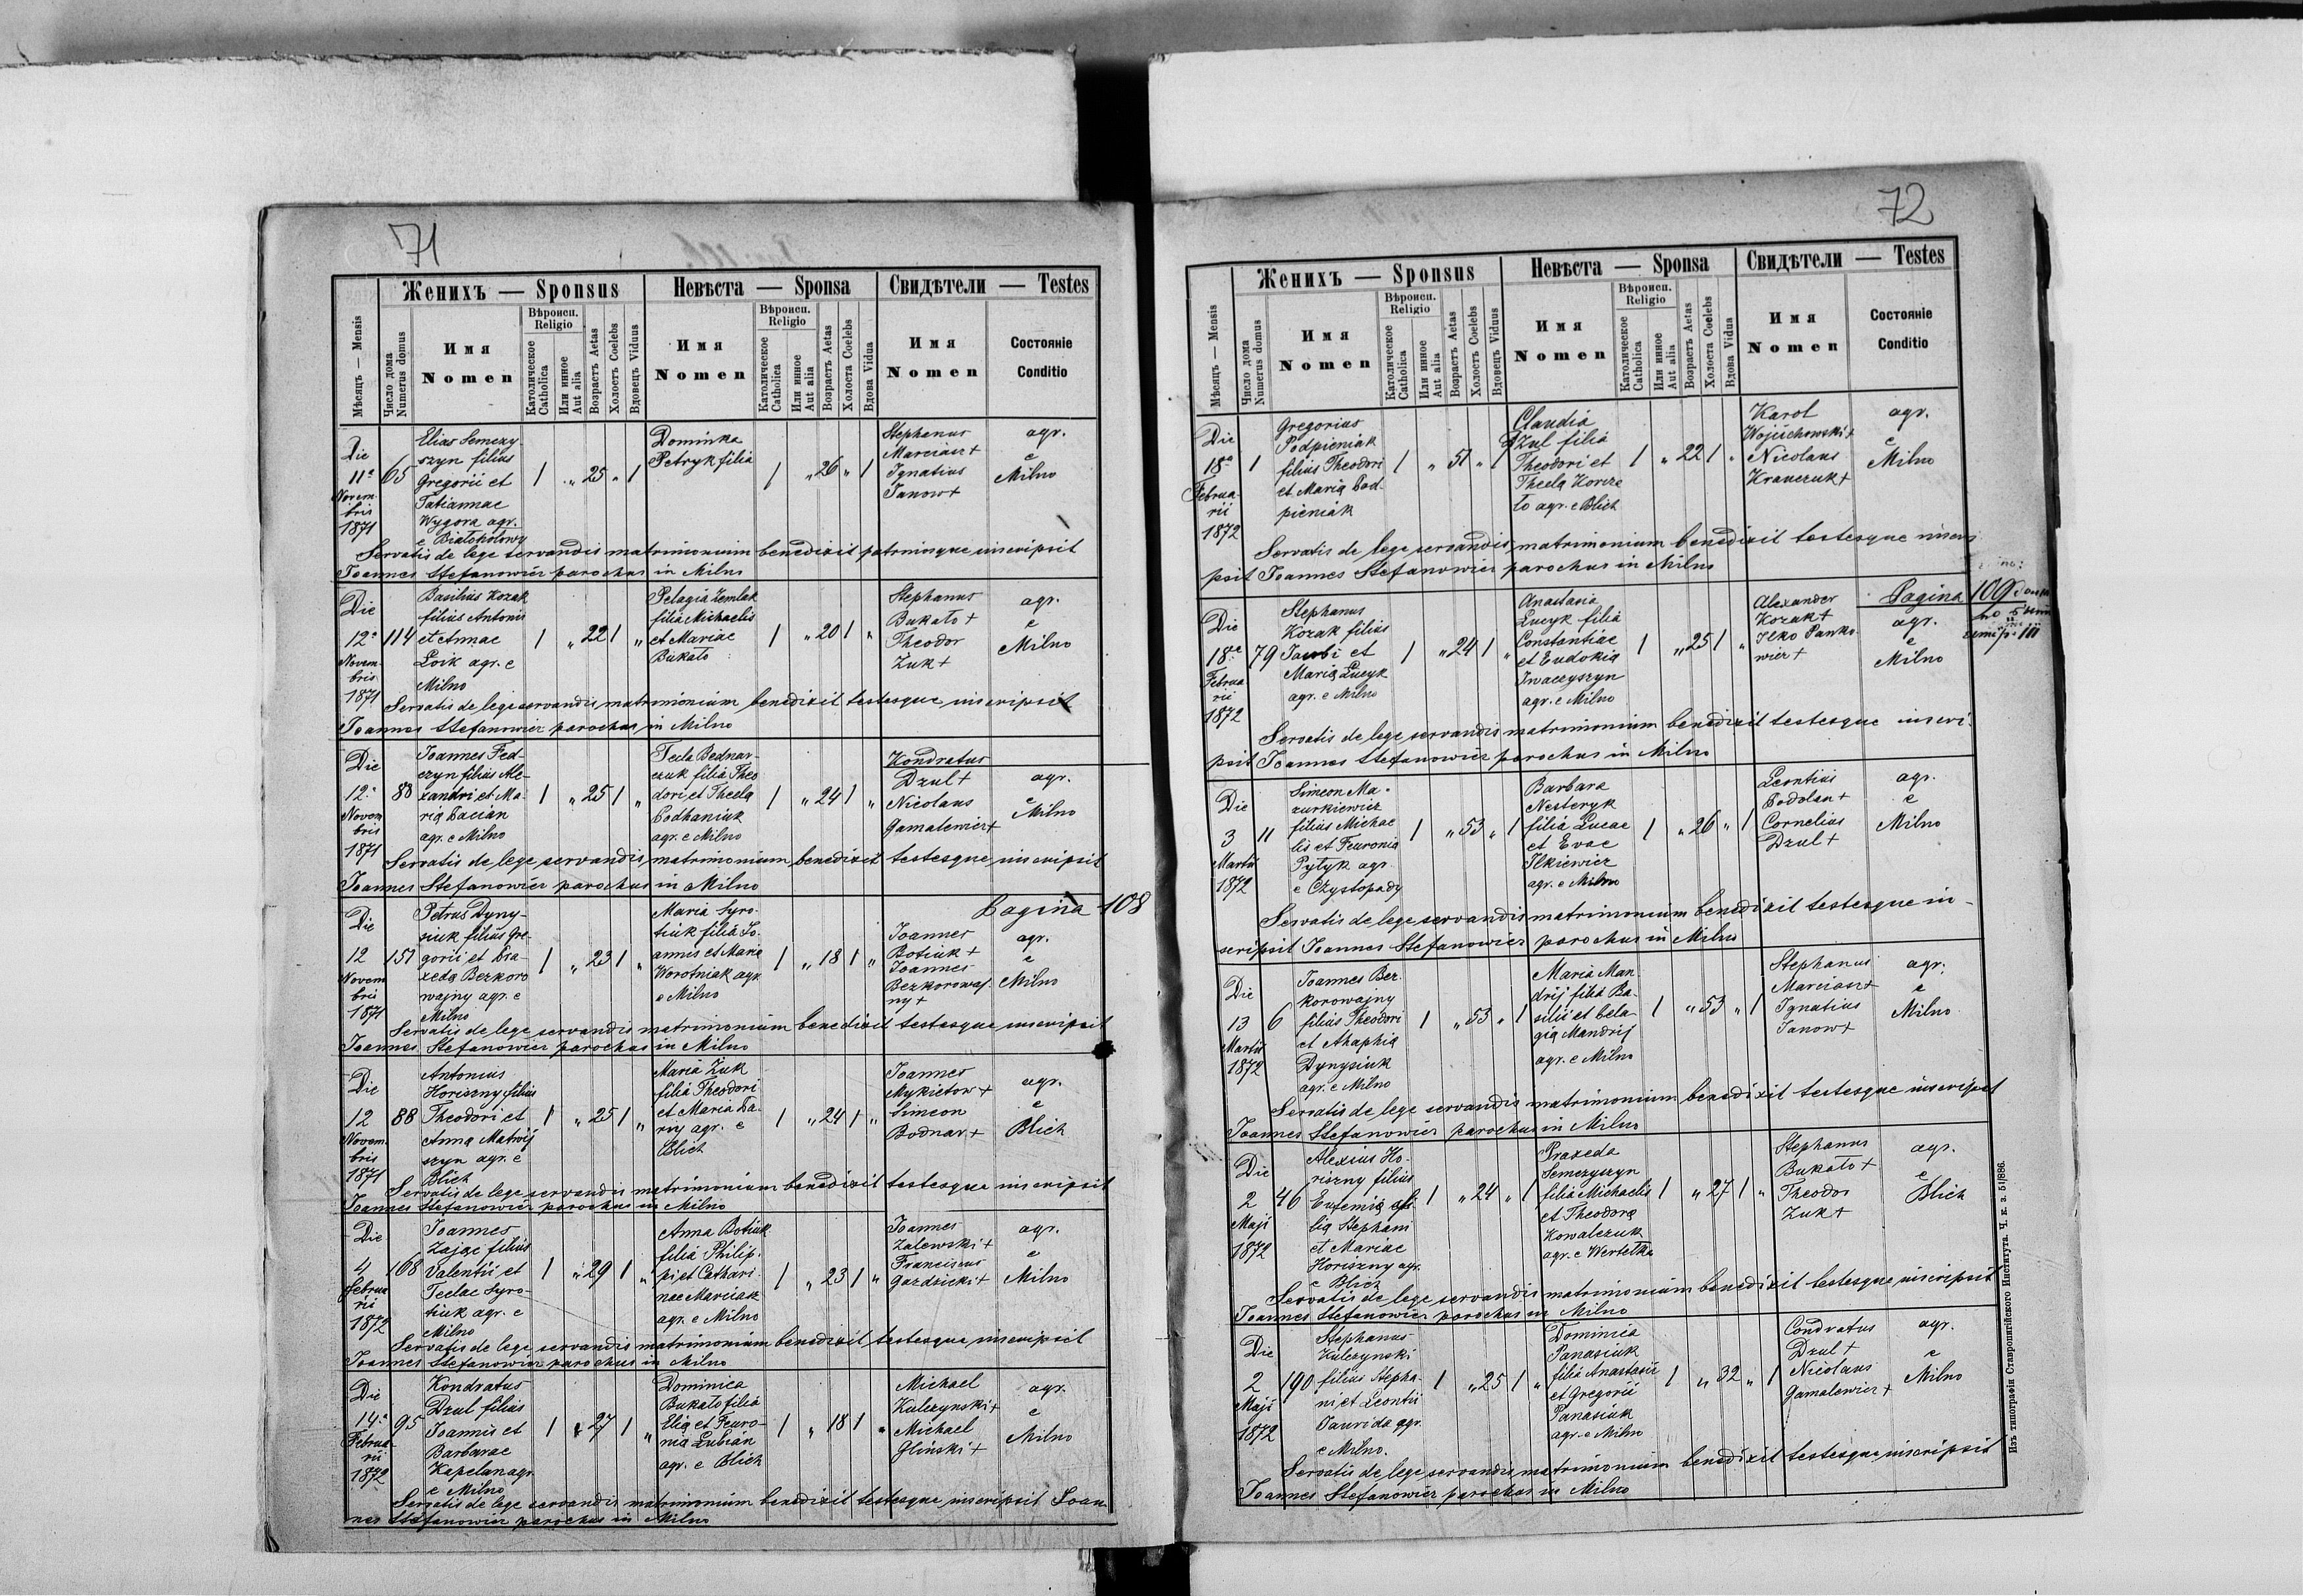 71
Женихъ — Sponsus
Невѣста — Sponsa
Свидѣтели — Testes
Мѣсяцъ — Mensis
Число дома
Numerus domus
Имя
Nomen
Вѣроисп.
Religio
Католическое
Catholica
Или инное
Aut alia
Возрастъ Aetas
Холостъ Coelebs
Вдовецъ Viduus
Имя
Nomen
Вѣроисп.
Religio
Католическое
Catholica
Или инное
Aut alia
Возрастъ Aetas
Холоста Coelebs
Вдова Vidua
Имя
Nomen
Состояніе
Conditio
Die
11ª
Novem
bris
1871
65
Elias Semczy
szyn filius
Gregorii et
Tatiannae
Wygora agr.
e Białokolowy
1 „ 25 „ 1
Dominka
Petryk filia
1 „ 26 „ 1
Stephanus
Marciasz +
Ignatius
Janow +
agr.
e
Milno
Servatis de lege servandis matrimonium benedixit patrinosque inscripsit
Joannes Stefanowicz parochus in Milno
Die
12ª
Novem
bris
1871
114
Basilius Kozak
filius Antonii
et Annae
Loik agr. e
Milno
1 „ 22 1 „
Pelagia Zemlak
filia Michaelis
et Mariae
Bukato
1 „ 20 1 „
Stephanus
Bukato +
Theodor
Zuk +
agr.
e
Milno
Servatis de lege servandis matrimonium benedixit testesque inscripsit
Joannes Stefanowicz parochus in Milno
Die
12ª
Novem
bris
1871
88
Joannes Fed-
czyn filius Ale-
xandri et Ma-
ria Pacian
agr. e Milno
1 „ 25 1 „
Tecla Bednar-
czuk filia Theo
dori et Thecla
Podhaniuk
agr. e Milno
1 „ 24 1 „
Kondratus
Dzul +
Nicolaus
Gamalewicz +
agr.
e
Milno
Servatis de lege servandis matrimonium benedixit testesque inscripsit
Joannes Stefanowicz parochus in Milno
Pagina 108
Die
12
Novem
bris
1871
151
Petrus Dyny-
siuk filius Gre-
gorii et Pra-
xeda Bezkoro
wajny agr. e
Milno
1 „ 23 1 „
Maria Syro-
tiuk filia Jo-
annis et Maria
Worotniak agr.
e Milno
1 „ 18 1 „
Joannes
Botiuk +
Joannes
Bezkorowaj
ny +
agr.
e
Milno
Servatis de lege servandis matrimonium benedixit testesque inscripsit
Joannes Stefanowicz parochus in Milno
Die
12
Novem.
bris
1871
88
Antonius
Horiszny filius
Theodori et
Anna Matwij
szyn agr. e
Blich
1 „ 25 1 „
Maria Zuk
filia Theodori
et Maria Pa-
ryj agr. e
Blich
1 „ 24 1 „
Joannes
Mykietow +
Simeon
Bodnar +
agr.
e
Blich
Servatis de lege servandis matrimonium benedixit testesque inscripsit
Joannes Stefanowicz parochus in Milno
Die
4
Februa
rii
1872
168
Joannes
Zajac filius
Valentii et
Teclae Syro-
tiuk agr. e
Milno
1 „ 29 1 „
Anna Botiuk
filia Philip-
pi et Cathari-
nae Marciasz
agr. e Milno
1 „ 23 1 „
Joannes
Zalewski +
Franciscus
Gazdzicki +
agr.
e
Milno
Servatis de lege servandis matrimonium benedixit testesque inscripsit
Joannes Stefanowicz parochus in Milno
Die
14ª
Februa
rii
1872
95
Kondratus
Dzul filius
Joannis et
Barbarae
Kapelan agr.
e Milno
1 „ 27 1 „
Dominica
Bukato filia
Elia et Feuro-
nia Lubian
agr. e Blich
1 „ 18 1 „
Michael
Kulczynski +
Michael
Glinski +
agr.
e
Milno
Servatis de lege servandis matrimonium benedixit testesque inscripsit Joan
nes Stefanowicz parochus in Milno
72
Женихъ — Sponsus
Невѣста — Sponsa
Свидѣтели — Testes
Мѣсяцъ — Mensis
Число дома
Numerus domus
Имя
Nomen
Вѣроисп.
Religio
Католическое
Catholica
Или инное
Aut alia
Возрастъ Aetas
Холостъ Coelebs
Вдовецъ Viduus
Имя
Nomen
Вѣроисп.
Religio
Католическое
Catholica
Или инное
Aut alia
Возрастъ Aetas
Холоста Coelebs
Вдова Vidua
Имя
Nomen
Состояніе
Conditio
Die
18ª
Februa
rii
1872
1
Gregorius
Podpieniak
filius Theodori
et Maria Pod-
pieniak
1 „ 51 „ 1
Claudia
Dzul filia
Theodori et
Thecla Korze
to agr. e Blich
1 „ 22 1 „
Karol
Wojciechowski +
Nicolaus
Krawczuk +
agr.
e
Milno
Servatis de lege servandis matrimonium benedixit testesque inscri
psit Joannes Stefanowicz parochus in Milno
Pagina 109
Die
18ª
Februa
rii
1872
79
Stephanus
Kozak filius
Jacobi et
Maria Lucyk
agr. e Milno
1 „ 24 1 „
Anastasia
Lucyk filia
Constantiae
et Eudokia
Iwaczyszyn
agr. e Milno
1 „ 25 1 „
Alexander
Kozak +
Ilko Panko
wicz +
agr.
e
Milno
Servatis de lege servandis matrimonium benedixit testesque inscri-
psit Joannes Stefanowicz parochus in Milno
Die
3
Martii
1872
11
Simeon Ma-
zurkiewicz
filius Michae
lis et Feuronia
Pytyk agr.
e Czystopady
1 „ 53 „ 1
Barbara
Nesteryk
filia Lucae
et Evae
Ilkiewicz
agr. e Milno
1 „ 26 „ 1
Leontius
Podolan +
Cornelius
Dzul +
agr.
e
Milno
Servatis de lege servandis matrimonium benedixit testesque in-
scripsit Joannes Stefanowicz parochus in Milno
Die
13
Martii
1872
6
Joannes Bez-
korowajny
filius Theodori
et Ahaphia
Dynysiuk
agr. e Milno
1 „ 53 „ 1
Maria Man
drij filia Ba-
silii et Pela-
gia Mandrij
agr. e Milno
1 „ 53 „ 1
Stephanus
Marciasz +
Ignatius
Janow +
agr.
e
Milno
Servatis de lege servandis matrimonium benedixit testesque inscripsit
Joannes Stefanowicz parochus in Milno
Die
2
Maji
1872
46
Alexius Ho-
riszny filius
Eufemia
lia Stephani
et Mariae
Horiszny agr.
e Blich
1 „ 24 „ 1
Praxeda
Semczyszyn
filia Michaelis
et Theodora
Kowalczuk
agr. e Wertelka
1 „ 27 1 „
Stephanus
Bukato +
Theodor
Zuk +
agr.
e
Blich
Servatis de lege servandis matrimonium benedixit testesque inscripsit
Joannes Stefanowicz parochus in Milno
Die
2
Maji
1872
190
Stephanus
Kulczynski
filius Stepha-
ni et Leontii
Daurida agr.
e Milno.
1 „ 25 1 „
Dominica
Panasiuk
filia Anastasie
et Gregorii
Panasiuk
agr. e Milno
1 „ 32 „ 1
Condratus
Dzul +
Nicolaus
Gamalewicz +
agr.
e
Milno
Servatis de lege servandis matrimonium benedixit testesque inscripsit
Joannes Stefanowicz parochus in Milno
Изъ типографіи Ставропигійского Института. Ч. к. з. 51/886.